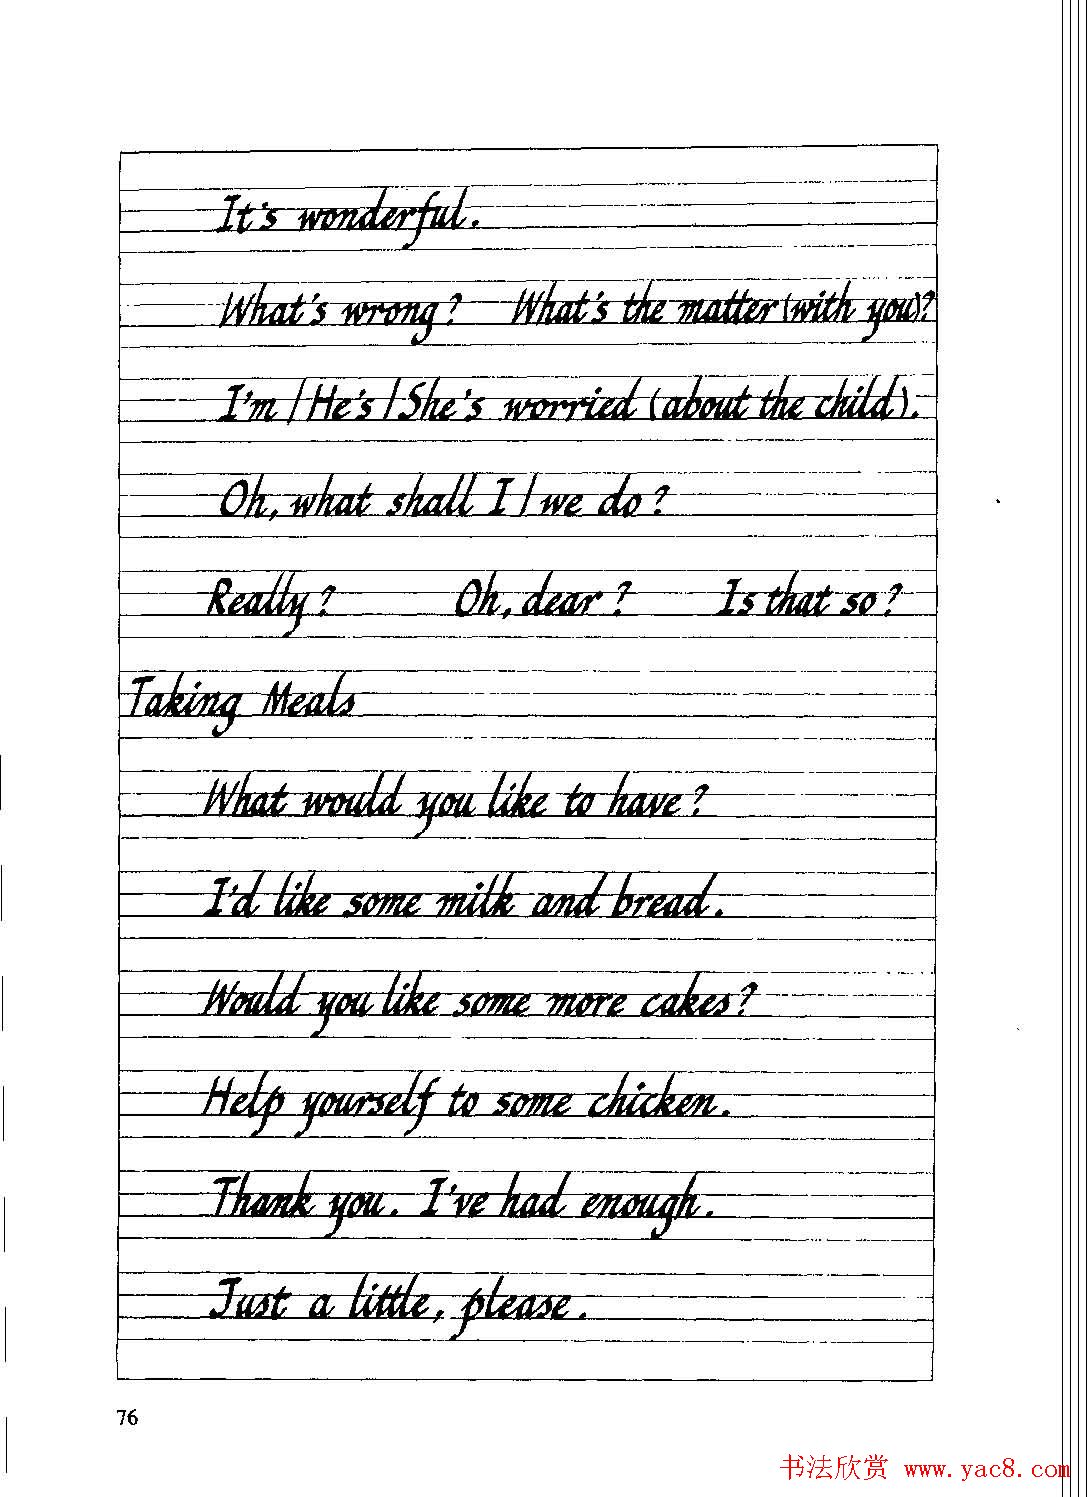 It's wonderful.
What's wrong? What's the matter (with you)?
I'm / He's / She's worried (about the child).
Oh, what shall I / we do?
Really? Oh, dear? Is that so?
Taking Meals
What would you like to have?
I'd like some milk and bread.
Would you like some more cakes?
Help yourself to some chicken.
Thank you. I've had enough.
Just a little, please.
76
书法欣赏 www.yac8.com